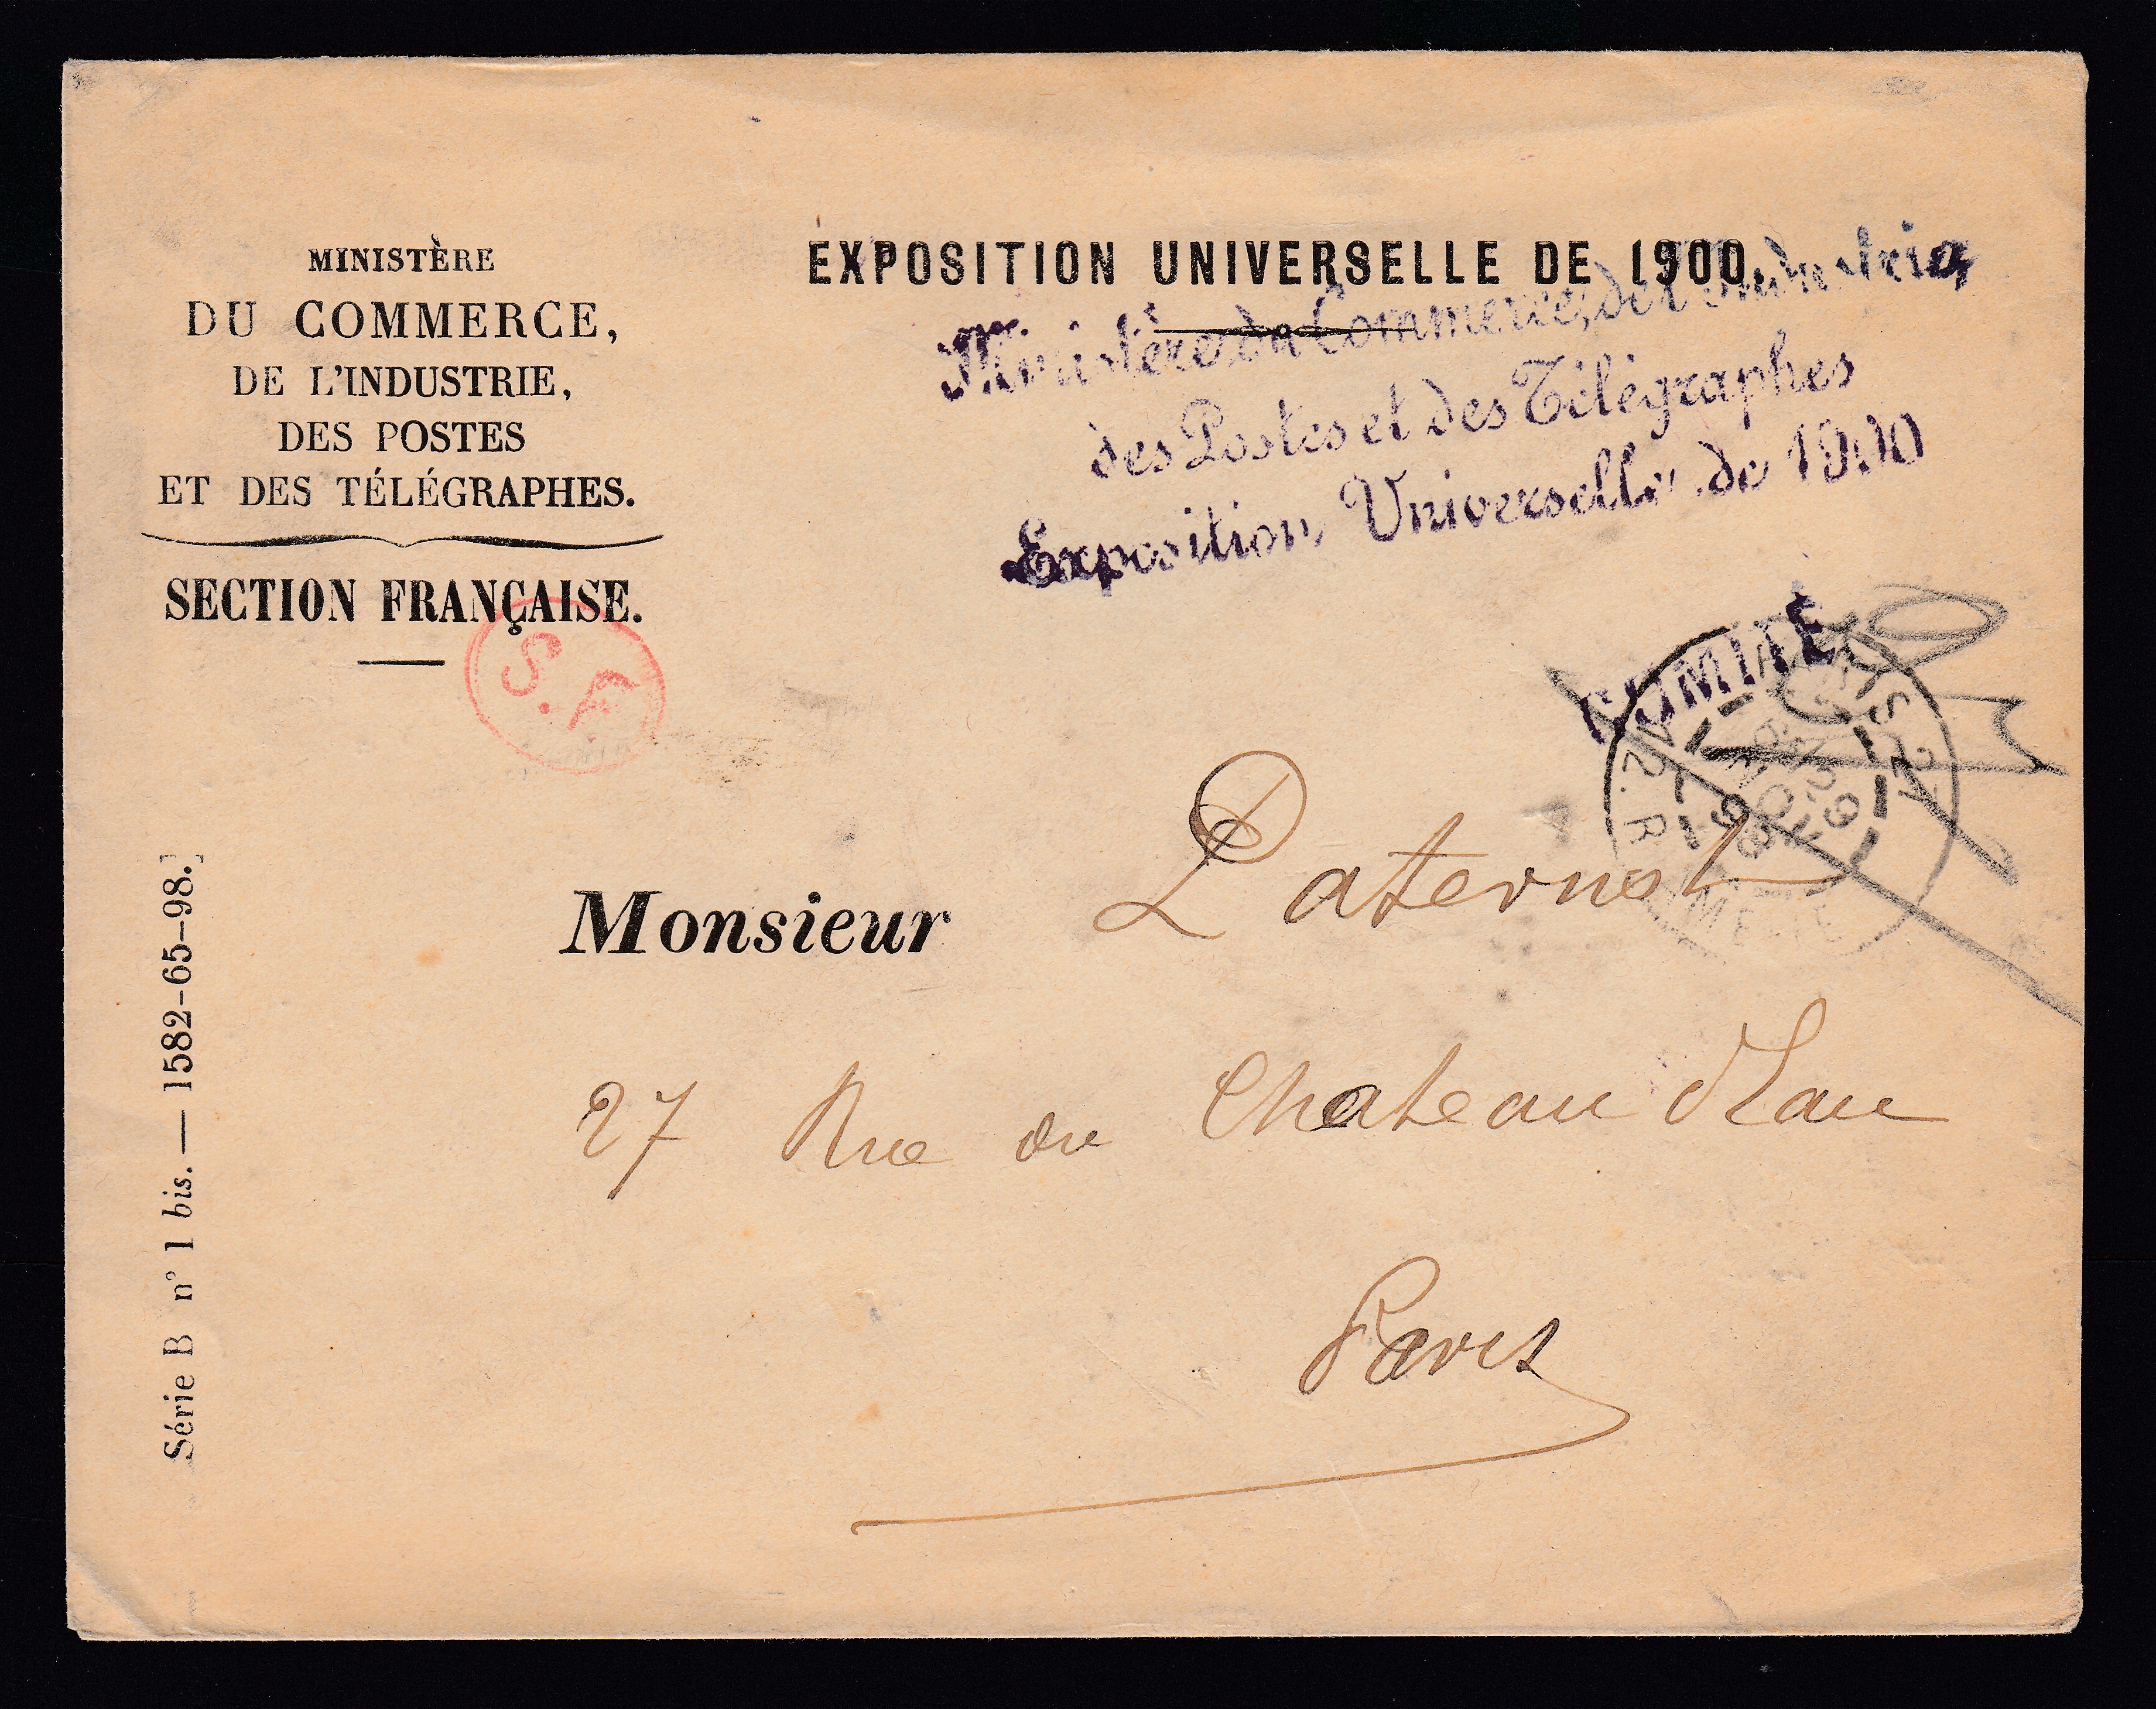 MINISTÈRE
DU COMMERCE,
DE L'INDUSTRIE,
DES POSTES
ET DES TÉLÉGRAPHES.
SECTION FRANÇAISE.
S.F.
EXPOSITION UNIVERSELLE DE 1900.
Ministère du Commerce, de l'Industrie,
des Postes et des Télégraphes
Exposition Universelle de 1900
COMITÉ
Monsieur Paternot
27 Rue du Chateau d'Eau
Paris
Série B n° 1 bis. — 1582-65-98.]